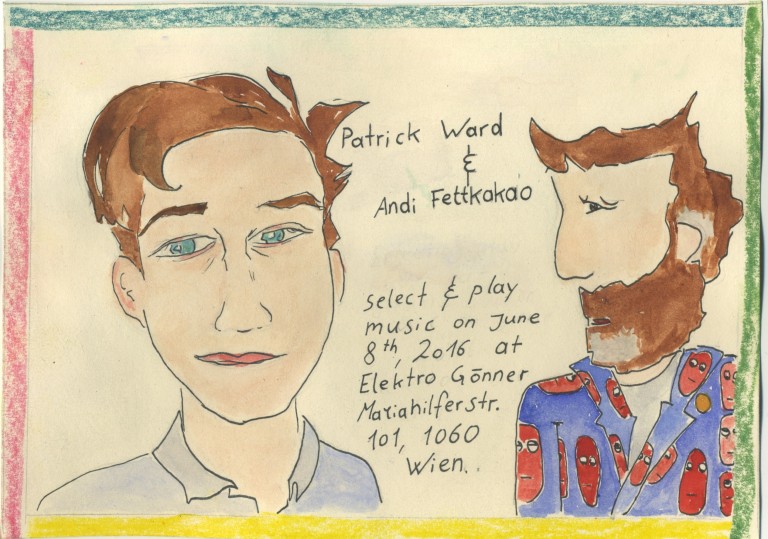 Patrick Ward
&
Andi Fettkakao
select & play
music on June
8th, 2016 at
Elektro Gönner
Mariahilferstr.
101, 1060
Wien.